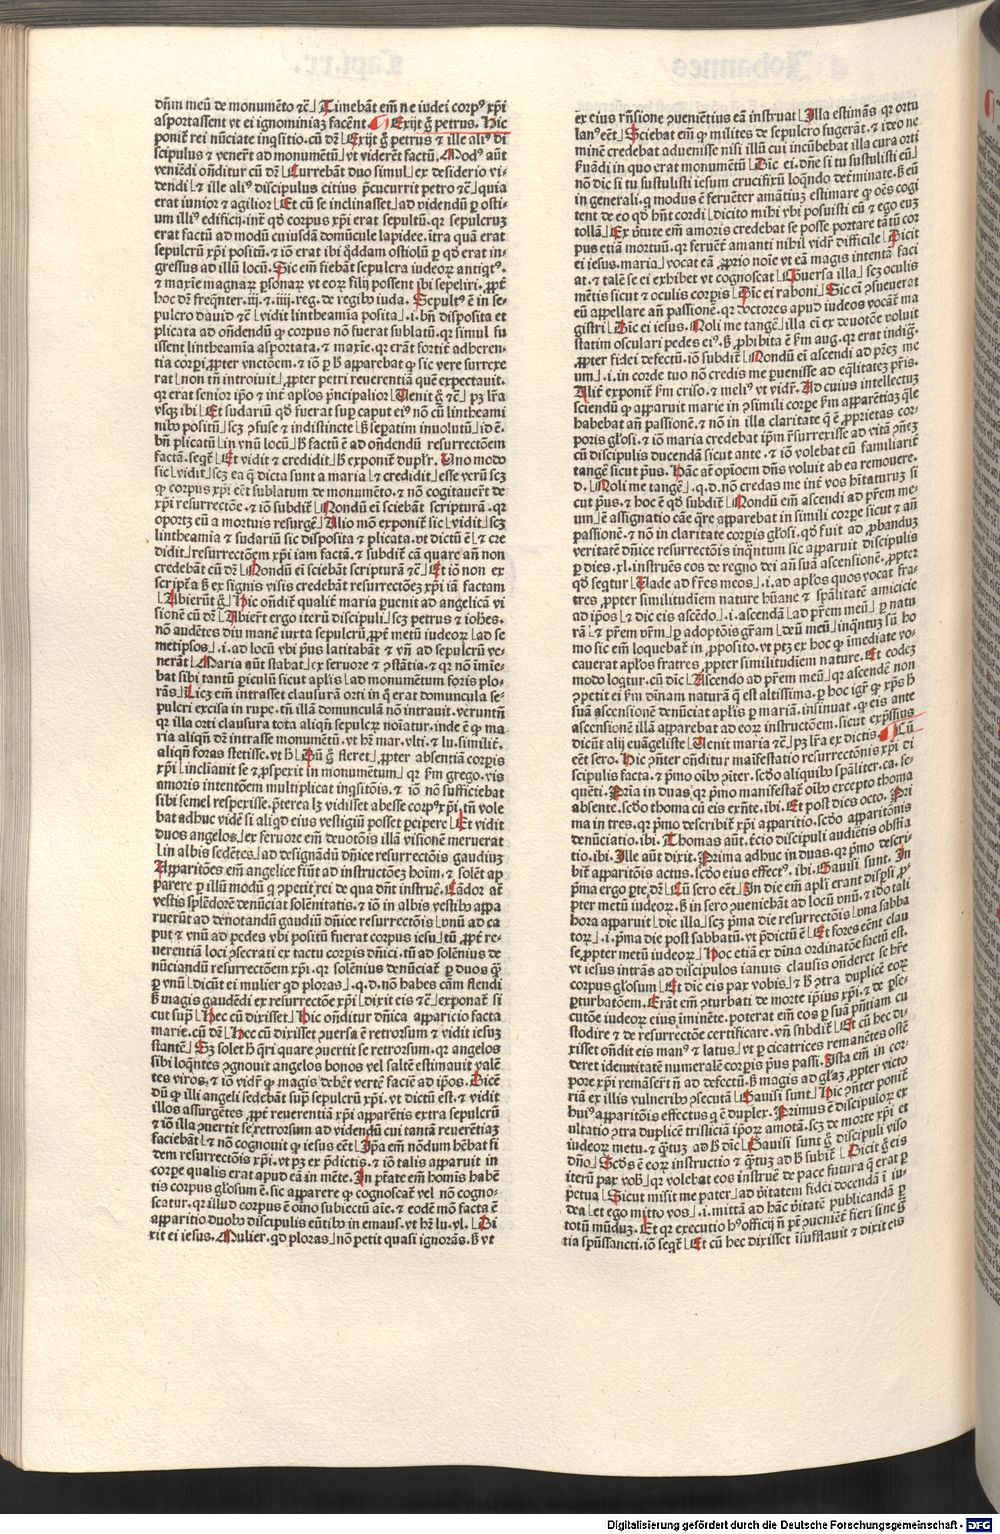 dñm meũ de monumẽto ⁊c̃⌋Timebãt em̃ ne iudei corpꝰ xp̃i
asportassent vt ei ignominiaꝫ facẽnt. ¶ Exijt g̃ petrus. Hic
ponit̃ rei nũciate inq̃sitio. cũ dꝛ⌊Exijt g̃ petrus ⁊ ille aliꝰ di
scipulus ⁊ vener̃t ad monumẽtũ⌋vt viderẽt factũ. Modꝰ aũt
veniẽdi oñditur cũ dꝛ⌊Currebãt duo simul⌋ex desiderio vi-
dendi⌊⁊ ille aliꝰ discipulus citius p̃cucurrit petro ⁊c̃⌋quia
erat iunior ⁊ agilior⌊Et cũ se inclinasset⌋ad videndũ ꝑ osti-
um illiꝰ edificij. int̃ q̃d corpus xp̃i erat sepultũ. qꝛ sepulcruꝫ
erat factũ ad modũ cuiusdã domũcule lapidee. ĩtra quã erat
sepulcrũ xp̃i positũ. ⁊ iõ erat ibi q̃ddam ostiolũ ꝑ q̃d erat in-
gressus ad illũ locũ. Sic em̃ fiebãt sepulcra iudeoꝝ antiq̃tꝰ.
⁊ maxĩe magnaꝝ ꝑsonaꝝ vt eoꝝ filij possent ibi sepeliri. ꝓpt̃
hoc dꝛ freq̃nter. iij. ⁊. iiij. reg. de regibꝰ iuda. Sepultꝰ ẽ in se-
pulcro dauid ⁊c̃⌊vidit lintheamĩa posita⌋.i. bñ disposita et
plicata ad oñdendũ ꝙ corpus nõ fuerat sublatũ. qꝛ simul fu
issent lintheamĩa asportata. ⁊ maxĩe. qꝛ erãt fortit̃ adheren-
tia corpi ꝓpter vnctõem. ⁊ iõ ꝑ h̃ apparebat ꝙ sic vere surrexe
rat⌊non tñ introiuit⌋ꝓpter petri reuerentiã quẽ expectauit.
qꝛ erat senior ip̃o ⁊ int̃ ap̃los p̃ncipalior⌊Uenit g̃ ⁊c̃⌋pꝫ lr̃a
vsqꝫ ibi⌊Et sudariũ q̃d fuerat sup caput eiꝰ nõ cũ lintheami
nibꝰ positũ⌋scꝫ ꝯfuse ⁊ indistincte⌊h̃ sepatim inuolutũ⌋id ẽ.
bñ plicatũ⌊in vnũ locũ⌋h̃ factũ ẽ ad oñdendũ resurrectõem
factã. seq̃t̃⌊Et vidit ⁊ credidit⌋h̃ exponit̃ duplr̃. Uno modo
sic⌊vidit⌋scꝫ ea q̃ dicta sunt a maria⌊⁊ credidit⌋esse verũ scꝫ
ꝙ corpus xp̃i eẽt sublatum de monumẽto. ⁊ nõ cogitauer̃t de
xp̃i resurrectõe. ⁊ iõ subdit̃⌊Nondũ ei sciebãt scripturã. qꝛ
oportꝫ eũ a mortuis resurge̅⌋Alio mõ exponit̃ sic⌊vidit⌋scꝫ
lintheamia ⁊ sudariũ sic disposita ⁊ plicata. vt dictũ ẽ⌊⁊ cre
didit⌋resurrectõem xp̃i iam factã. ⁊ subdit̃ cã quare añ non
credebãt cũ dꝛ⌊Nondũ ei sciebãt scripturã ⁊c̃⌋Et iõ non ex
script̃a h̃ ex signis visis credebãt resurrectõeꝫ xp̃i iã factam
⌊Abierũt g̃⌋Hic oñdit̃ qualit̃ maria ꝑuenit ad angelicã vi
sionẽ cũ dꝛ⌊Abier̃t ergo iterũ discipuli⌋scꝫ petrus ⁊ ioh̃es.
nõ audẽtes diu manẽ iuxta sepulcrũ, ꝓpt̃ metũ iudeoꝝ⌊ad se
metipsos⌋.i. ad locũ vbi p̃us latitabãt ⁊ vñ ad sepulcrũ ve-
nerãt⌊Maria aũt stabat⌋ex feruore ⁊ ꝯstãtia. ⁊ qꝛ nõ ĩmie-
bat sibi tantũ ꝑiculũ sicut aplis⌊ad monumentum foris plo-
rãs⌋Licꝫ em̃ intrasset clausurã orti in q̃ erat domuncula se-
pulcri excisa in rupe. tñ illã domunculã nõ intrauit. veruntñ
qꝛ illa orti clausura tota aliqñ sepulcrꝫ noĩatur. inde ẽ ꝙ ma
ria aliqñ dꝛ intrasse monumẽtũ. vt hꝛ̃ mar. vlti. ⁊ lu. similit̃.
aliqñ foras stetisse. vt h̃⌊Dũ g̃ fleret⌋ꝓpter absentiã corpis
xp̃i⌊inclĩauit se ⁊ ꝓspexit in monumẽtum⌋qꝛ km̃ grego. vis
amoris intentõem multiplicat inq̃sitõis. ⁊ iõ nõ sufficiebat
sibi semel respexisse. p̃terea lꝫ vidisset abesse corpꝰ xp̃i. tñ vole
bat adhuc vidẽ si aliq̃d eius vestigiũ posset pcipere⌊Et vidit
duos angelos⌋ex feruore em̃ deuotõis illã visionẽ meruerat
⌊in albis sedẽtes⌋ad designãdũ dñice resurrectõis gaudiuꝫ
Apparitões em̃ angelice fiũt ad instructõeꝫ hoĩm. ⁊ solẽt ap
parere ꝑ illũ modũ q̃ ꝯpetit rei de qua dñt instrue̅. Cãdor at̃
vestis splẽdorẽ denũciat solẽnitatis. ⁊ iõ in albis vestibꝰ appa
ruerũt ad denotandũ gaudiũ dñice resurrectõis⌊vnũ ad ca
put ⁊ vnũ ad pedes vbi positũ fuerat corpus iesu⌋tũ ꝓpt̃ re-
uerentiã loci ꝯsecrati ex tactu corpis dñici. tũ ad solẽnius de
nũciandũ resurrectõem xp̃i. qꝛ solẽnius denũciat̃ ꝑ duos q̃
ꝑ vnũ⌊dicũt ei mulier q̃d ploras⌋.q.d. nõ habes cãm flendi
h̃ magis gaudẽdi ex resurrectõe xp̃i⌊dixit eis ⁊c̃⌋exponat̃ si
cut sup̃⌊Hec cũ dixisset⌋Hic oñditur dñica apparicio facta
marie. cũ dꝛ⌊Hec cũ dixisset ꝯuersa ẽ retrorsum ⁊ vidit iesuꝫ
stantẽ⌋Sꝫ solet h̃ q̃ri quare ꝯuertit se retrorsum. qꝛ angelos
sibi loq̃ntes ꝯgnouit angelos bonos vel saltẽ estimauit valẽ
tes viros. ⁊ iõ vidr̃ ꝙ magis debẽt vertẽ faciẽ ad ip̃os. Dicẽ
dũ ꝙ illi angeli sedebãt sup̃ sepulcrũ xp̃i. vt dictũ est. ⁊ vidit
illos assurgẽtes ꝓpt̃ reuerentiã xp̃i apparẽtis extra sepulcrũ
⁊ iõ illa ꝯuertit se retrorsum ad videndũ cui tantã reuerẽtiaꝫ
faciebãt⌊⁊ nõ cognouit ꝙ iesus eẽt⌋Ip̃a em̃ nõdum hẽbat fi
dem resurrectõis xp̃i. vt pꝫ ex p̃dictis. ⁊ iõ talis apparuit in
corpe qualis erat apud eã in mẽte. In p̃tate em̃ homis habẽ
tis corpus gl̃osum ẽ. sic apparere ꝙ cognoscat̃ vel nõ cogno-
scatur. qꝛ illud corpus ẽ oĩno subiectũ aĩe. ⁊ eodẽ mõ facta ẽ
apparitio duobꝰ discipulis eũtibꝰ in emaus. vt hꝛ̃ lu. vl.⌊Di
xit ei iesus. Mulier. q̃d ploras⌋nõ petit quasi ignorãs. h̃ vt
ex eius rñsione ꝯueniẽtius eã instruat⌊Illa estimãs qꝛ ortu
lanꝰ eẽt⌋Sciebat em̃ ꝙ milites de sepulcro fugerãt. ⁊ ideo ne
minẽ credebat aduenisse nisi illũ cui incũbebat illa cura orti
ẽuãdi in quo erat monumẽtũ⌊Dic̃ ei. dñe si tu sustulisti eũ⌋
nõ dic̃ si tu sustulisti iesum crucifixũ loq̃ndo det̃minate. h̃ eũ
in generali. q̃ modus ẽ feruẽter amãtiuꝫ estimare ꝙ oẽs cogi
tent de eo q̃d hñt cordi⌊dicito mihi vbi posuisti eũ ⁊ ego euꝫ
tollã⌋Ex ṽtute em̃ amoris credebat se posse portare tãtũ cor
pus etiã mortuũ. qꝛ feruẽt̃ amanti nihil vidr̃ difficile⌊Dicit
ei iesus. maria⌋vocat eã ꝓprio noĩe vt eã magis intentã faci
at. ⁊ talẽ se ei exhibet vt cognoscat⌊Cõuersa illa⌋scꝫ oculis
mẽtis sicut ⁊ oculis corpis⌊Dic̃ ei raboni⌋Sic em̃ ꝯsueuerat
eũ appellare añ passionẽ. qꝛ doctores apud iudeos vocãt̃ ma
gistri⌊Dic̃ ei iesus. Noli me tangẽ⌋illa ei ex deuotõe voluit
statim osculari pedes eiꝰ. h̃ ꝓhibita ẽ km̃ aug. qꝛ erat indig̃.
ꝓpter fidei defectũ. iõ subdit̃⌊Nondũ ei ascendi ad p̃reꝫ me
um⌋.i. in corde tuo nõ credis me puenisse ad eq̃litateꝫ p̃ris.
Alit̃ exponit̃ km̃ criso. ⁊ meliꝰ vt vidr̃. Ad cuius intellectuꝫ
sciendũ ꝙ apparuit marie in ꝯsimili corpe km̃ apparẽtiaꝫ q̃le
habebat añ passionẽ. ⁊ nõ in illa claritate q̃ ẽ ꝓprietas cor-
poris gl̃osi. ⁊ iõ maria credebat ip̃m rẽsurrexisse ad vitã ꝯ̃neꝫ
cũ discipulis ducendã sicut ante. ⁊ iõ volebat eũ familiarit̃
tangẽ sicut p̃us. Hãc at̃ opĩoem dñs voluit ab ea remouere.
d.⌊Noli me tangẽ⌋.q.d. nõ credas me int̃ vos hitaturuꝫ si
cut p̃us. ⁊ hoc ẽ q̃d subdit̃⌊Nondũ em̃ ascendi ad p̃rem me-
um⌋ẽ assignatio cãe q̃re apparebat in simili corpe sicut ⁊ añ
passionẽ. ⁊ nõ in claritate corpis gl̃osi. q̃d fuit ad ꝓbanduꝫ
veritatẽ dñice resurrectõis inq̃ntum sic apparuit discipulis
ꝑ dies. xl. instruẽs eos de regno dei añ suã ascensionẽ. ꝓpter
q̃d seq̃tur⌊Uade ad fr̃es meos⌋.i. ad ap̃los quos vocat fra-
tres ꝓpter similitudiẽm nature hũane ⁊ sp̃alitatẽ amicicie
ad ip̃os⌊⁊ dic eis ascẽdo⌋.i. ascendã⌊ad p̃rem meũ⌋ꝑ natu
rã⌊⁊ p̃rem vr̃m⌋ꝑ adoptõis gr̃am⌊deũ meũ⌋inq̃ntuꝫ sũ ho
mo sic em̃ loquebat̃ in ꝓposito. vt ptꝫ ex hoc ꝙ imediate vo-
cauerat ap̃los fratres ꝓpter similitudiẽm nature. Et eodeꝫ
modo loq̃tur. cũ dic̃⌊Ascendo ad p̃rem meũ⌋qꝛ ascendẽ non
ꝯpetit ei km̃ diuinam naturã q̃ est altissima. ꝑ hoc igr̃ ꝙ xp̃s h̃
suã ascensionẽ denũciat ap̃lis ꝑ mariã. insinuat. ꝙ eis ante
ascensionẽ illã apparebat ad eoꝝ instructõem. sicut exp̃ssius
dicũt alij euãgeliste⌊Uenit maria ⁊c̃⌋pꝫ lr̃a ex dictis. ¶ Cũ
eẽt sero. Hic ꝯñter oñditur maĩfestatio resurrectõnis xp̃i di
scipulis facta. ⁊ p̃mo oĩbꝰ ꝯit̃er. sc̃do aliquibꝰ sp̃aliter. ca. se-
quẽti. Prĩa in duas. qꝛ p̃mo manifestat̃ oĩbꝰ excepto thoma
absente. sc̃do thoma cũ eis exñte. ibi. Et post dies octo. Pri
ma in tres. qꝛ p̃mo describit̃ xp̃i apparitio. sc̃do apparitõnis
denũciatio. ibi. Thomas aũt. t̃cio discipuli audiẽtis obstĩa
tio. ibi. Ille aũt dixit. Prima adhuc in duas. qꝛ p̃mo descri-
bit̃ apparitõis actus. sc̃do eius effectꝰ. ibi. Gauisi sunt. In
p̃ma ergo p̃te dꝛ⌊Cũ sero eẽt⌋In die em̃ ap̃li erant disp̃si ꝓ
pter metũ iudeoꝝ. h̃ in sero ꝯueniebãt ad locũ vnũ. ⁊ ido tali
hora apparuit⌊die illa⌋scꝫ p̃ma die resurrectõis⌊vna sabba
toꝝ⌋.i. p̃ma die post sabbatũ. vt p̃dictũ ẽ⌊Et fores eẽnt clau
se ꝓpter metũ iudeoꝝ⌋Hoc etiã ex diuina ordinatõe factũ est.
vt iesus intrãs ad discipulos ianuis clausis oñderet se hr̃e
corpus gl̃osum⌊Et dic eis pax vobis⌋⁊ h̃ ꝯtra duplicẽ eoꝝ
ꝑturbatõem. Erãt em̃ ꝯturbati de morte ip̃ius xp̃i. ⁊ de pse-
cutõe iudeoꝝ eis iminẽte. poterat em̃ eos ꝑ suã p̃ntiam cu
stodire ⁊ de resurrectõe certificare. vñ subdit̃⌊Et cũ hec di-
xisset oñdit eis manꝰ ⁊ latus⌋vt ꝑ cicatrices remanẽtes ostẽ
deret idẽtitatẽ numeralẽ corpis p̃us passi. Ista em̃ in cor-
pore xp̃i remãser̃t ñ ad defectũ. h̃ magis ad gl̃aꝫ ꝓpter victo
riã ex illis vulneribꝰ ꝯsecutã⌊Gauisi sunt⌋Hic ꝯñter ponit̃
huiꝰ apparitõis effectus q̃ ẽ duplex. Primus ẽ discipuloꝝ ex
ultatio ꝯtra duplicẽ tristiciã ip̃oꝝ amotã. scꝫ de morte xp̃i et
iudeoꝝ metu. ⁊ q̃tuꝫ ad h̃ dic̃⌊Gauisi sunt g̃ discipuli viso
dño⌋Sc̃ds ẽ eoꝝ instructio ⁊ q̃tuꝫ ad h̃ subit̃⌊Dicit g̃ eis
iterũ pax vob̃⌋qꝛ volebat eos instruẽ de pace futura q̃ erat ꝑ
petua⌊Sicut misit me pater⌋ad ṽitatem fidei docendã ĩ iu-
dea⌊et ego mitto vos⌋.i. mittã ad hãc ṽitatẽ publicandã ꝑ
totũ mũduꝫ. Et qꝛ executio hꝰ officij ñ p̃t ꝯueniẽt̃ fieri sine g̃
tia sp̃ussancti. iõ seq̃t̃⌊Et cũ hec dixisset ĩsufflauit ⁊ dixit eis
Digitalisierung gefördert durch die Deutsche Forschungsgemeinschaft - DFG